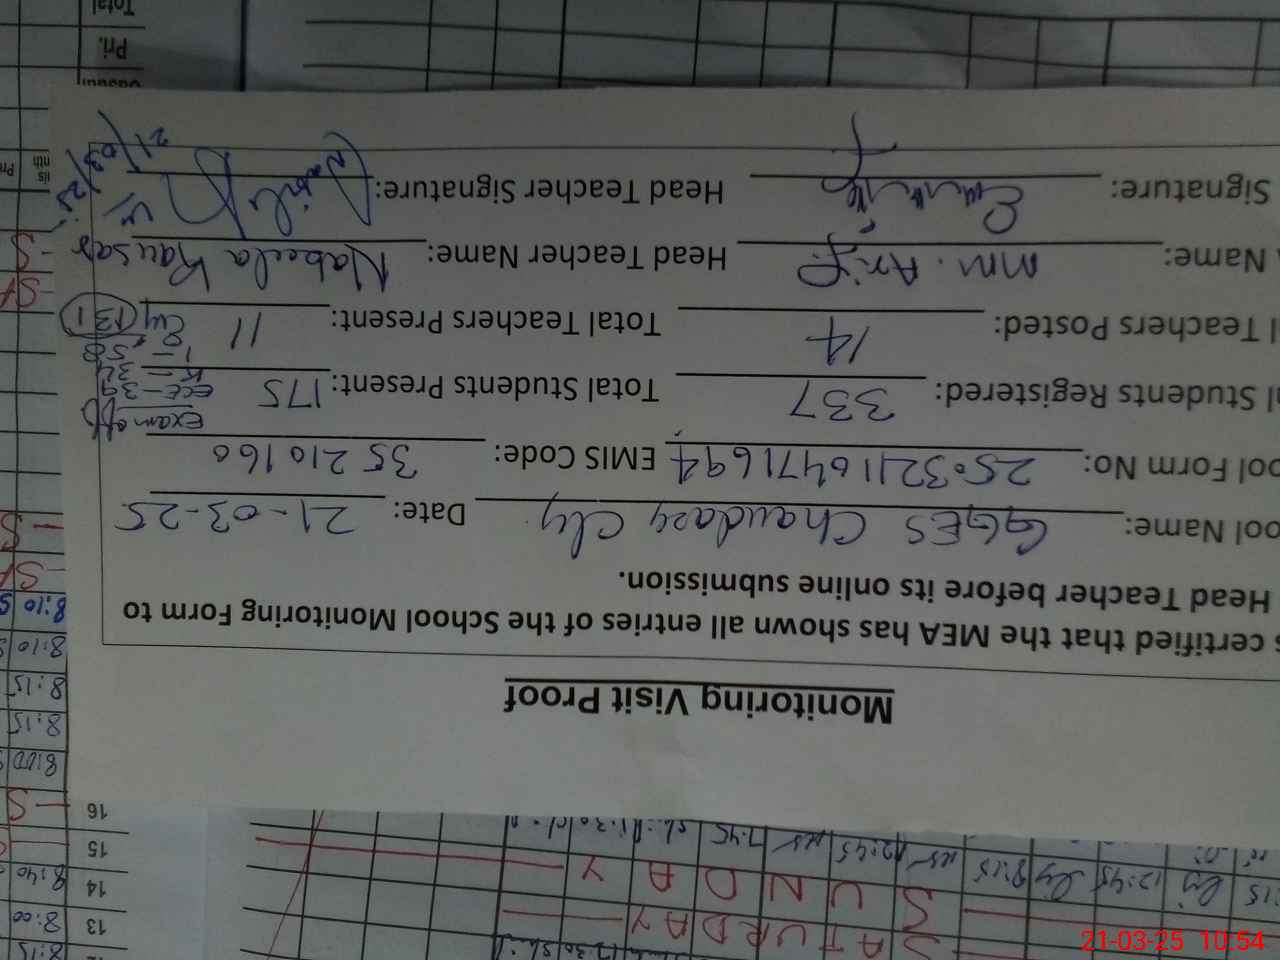 Monitoring Visit Proof
certified that the MEA has shown all entries of the School Monitoring Form to
Head Teacher before its online submission.
ool Name: GGES Chaudary Date: 21-03-25
ool Form No: EMIS Code: 35210160
Students Registered: 337 Total Students Present: 175
Exam off
ECE-39
K-34
1-58
131
Teachers Posted: 14 Total Teachers Present: 11
Name: Mm. Arif Head Teacher Name: Nabeela Kausar
Signature: Head Teacher Signature:
21/03/25
Total
Pri.
8:10
8:10
8:15
8:15
8:00
16
15
14 8:40
13 8:00
8:15
12:45 8:15 12:45 7:45
S U N D A Y
S A T U R D A Y
21-03-25 10:54